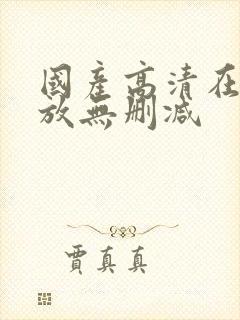 國產高清在
放無刪減
賈真真